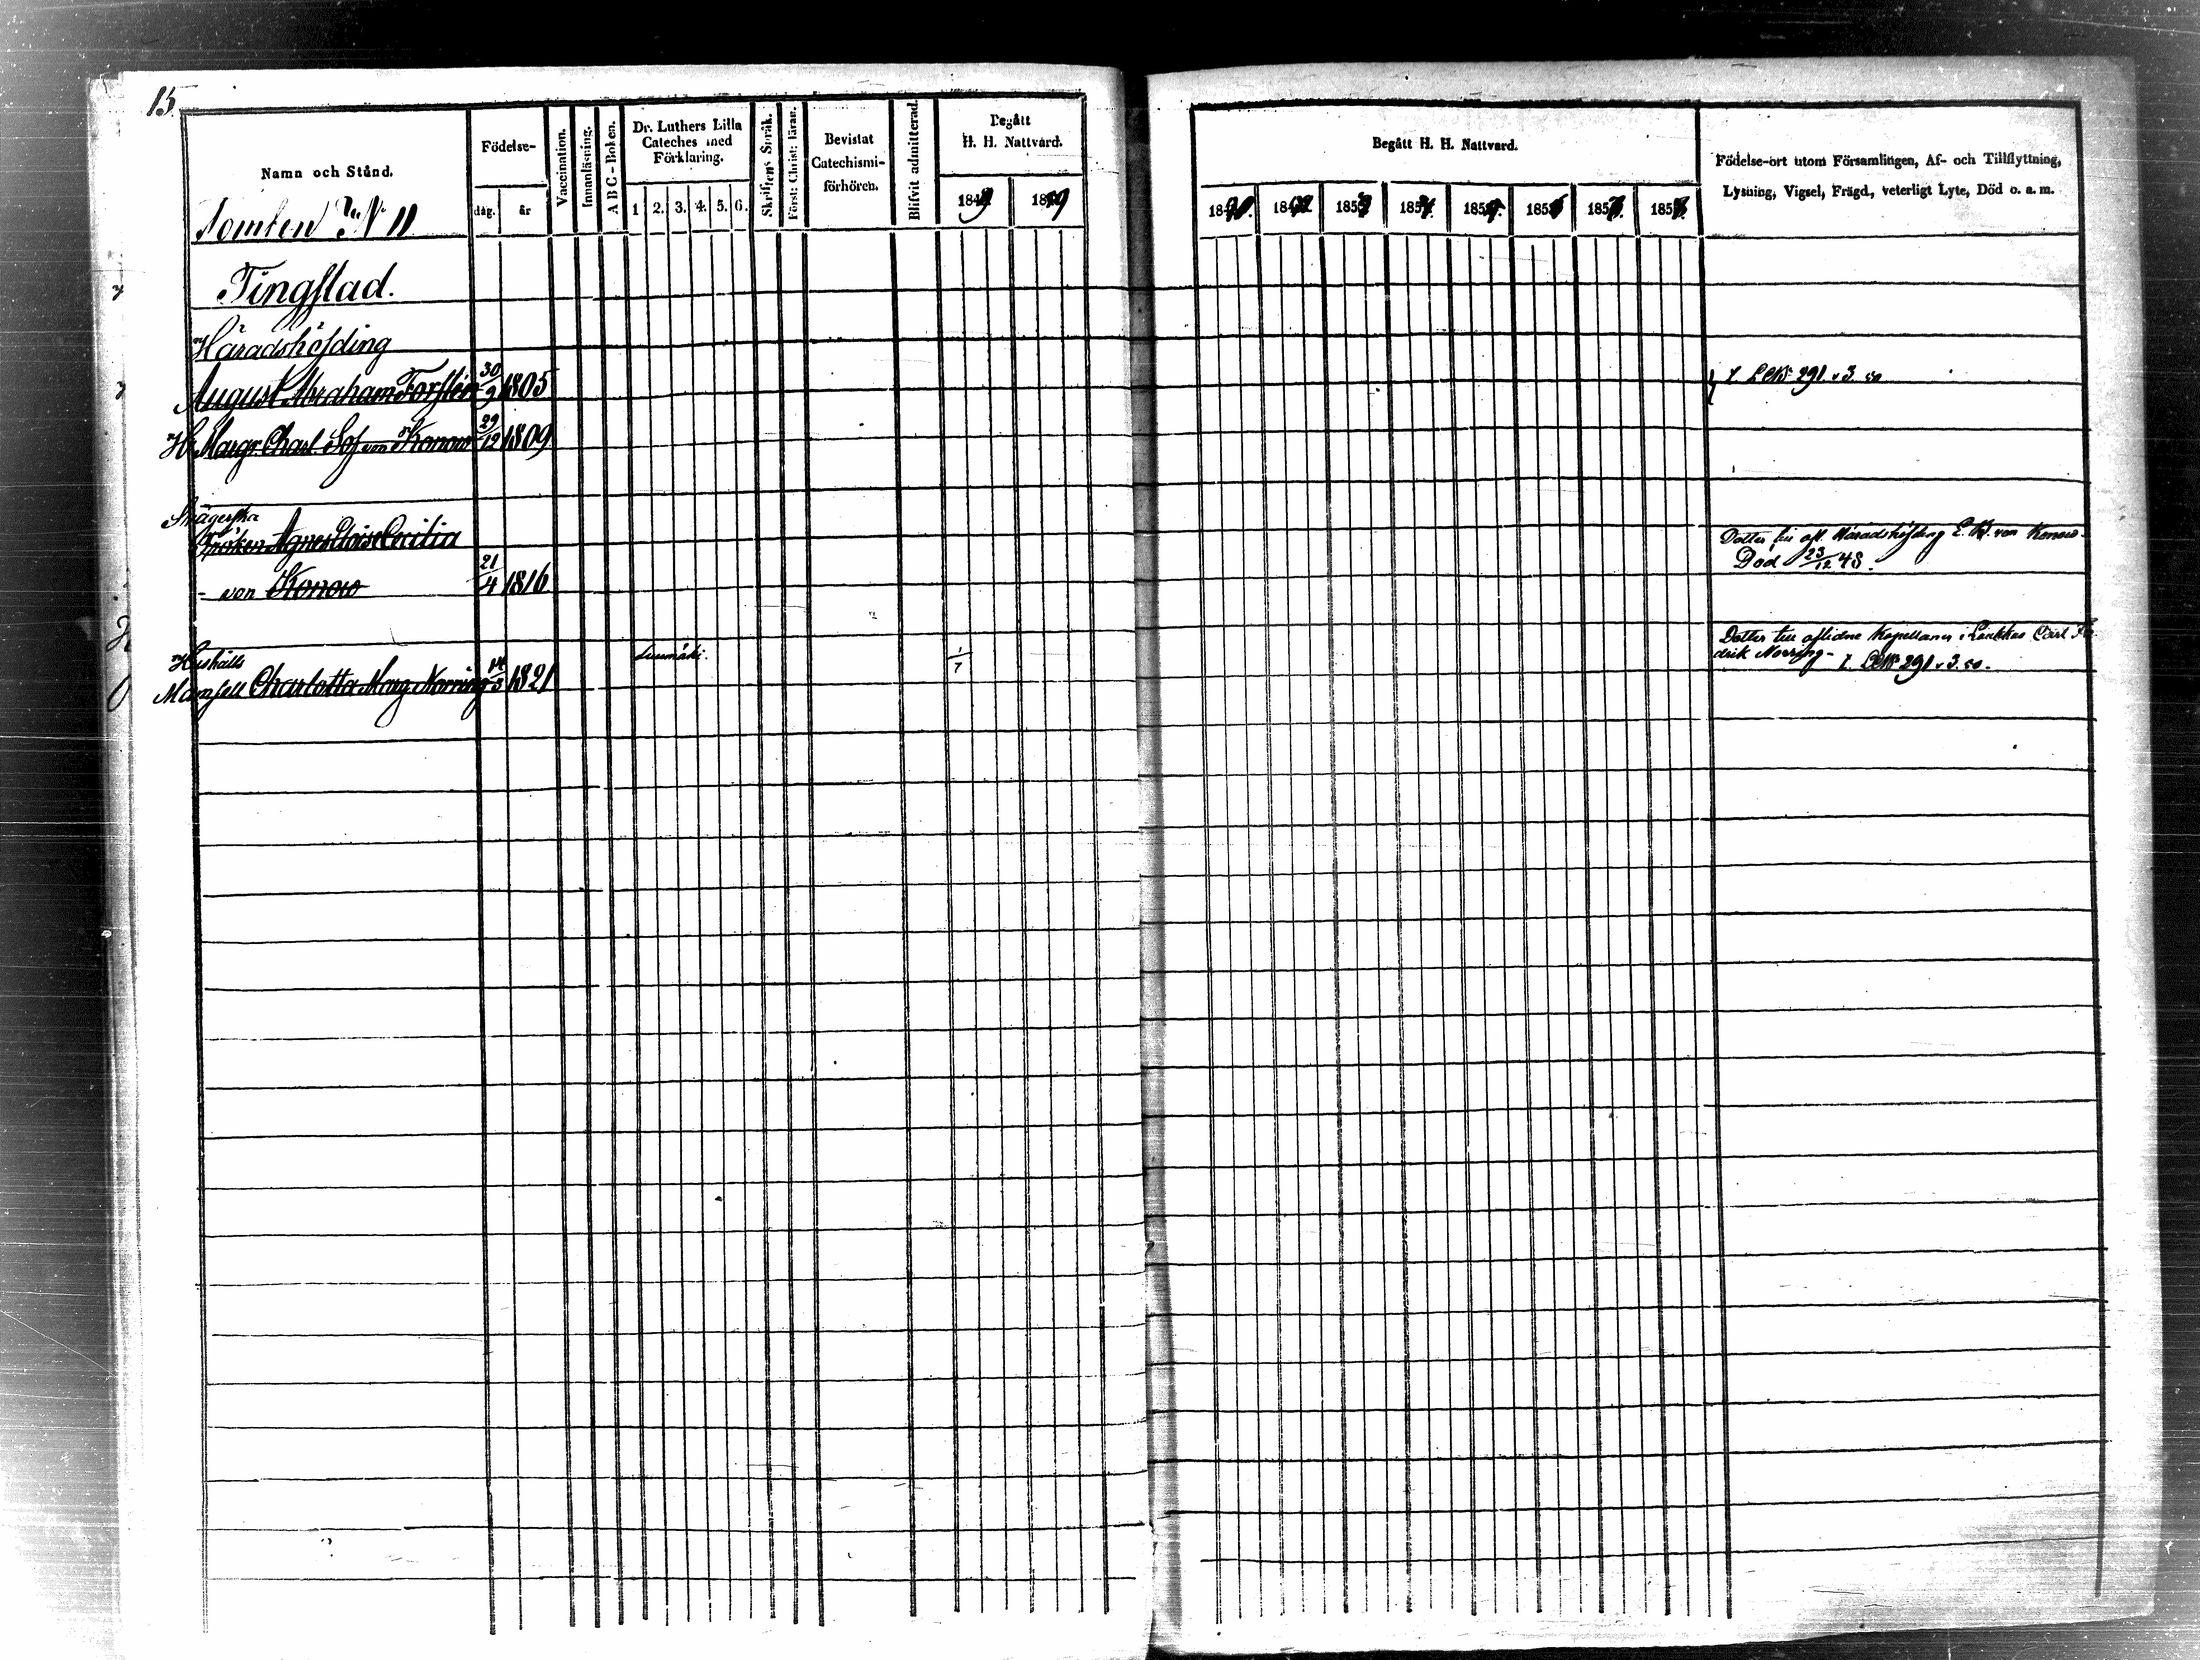 15.
Namn och Stånd.
Födelse-
dag. år
Vaccination.
Innanläsning.
A B C-Boken.
Dr. Luthers Lilla
Cateches med
Förklaring.
1 2. 3. 4. 5. 6.
Skriftens Språk.
Först: Christ: läran.
Bevistat
Catechismi-
förhören.
Blifvit admitterad.
Begått
H. H. Nattvard.
Begått H. H. Nattvard.
Födelse-ort utom Församlingen, Af- och Tillflyttning,
Lysning, Vigsel, Frägd, veterligt Lyte, Död o. a. m.
Tomten N 11
Tingstad.
Häradshöfding
August Abraham Forstén 30/9 1805 291. 3. 50
H. Margr. Charl. Sof. von Konow 29/12 1809
Svägerska
Fröken Agnes Cecilia Dotter Häradshöfding von Konow
- von Konow 21/4 1816 Död 23/12 48.
Hushålls 1/7 Dotter till aflidne Kapellanen i Carl
Mamsell Charlotta Marg. Norring 1821 drik Norring - 291. 3. 50.